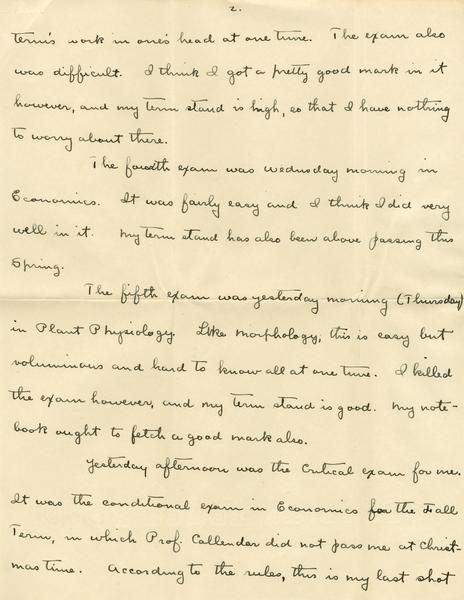 2.
term's work in one's head at one time. The exam also
was difficult. I think I got a pretty good mark in it
however, and my term stand is high, so that I have nothing
to worry about there.
The fourth exam was Wednesday morning in
Economics. It was fairly easy and I think I did very
well in it. My term stand has also been above passing this
Spring.
The fifth exam was yesterday morning (Thursday)
in Plant Physiology. Like Morphology, this is easy but
voluminous and hard to know all at one time. I killed
the exam however, and my term stand is good. My note-
book ought to fetch a good mark also.
Yesterday afternoon was the critical exam for me.
It was the conditional exam in Economics for the Fall
Term, in which Prof. Callender did not pass me at Christ-
mas time. According to the rules, this is my last shot